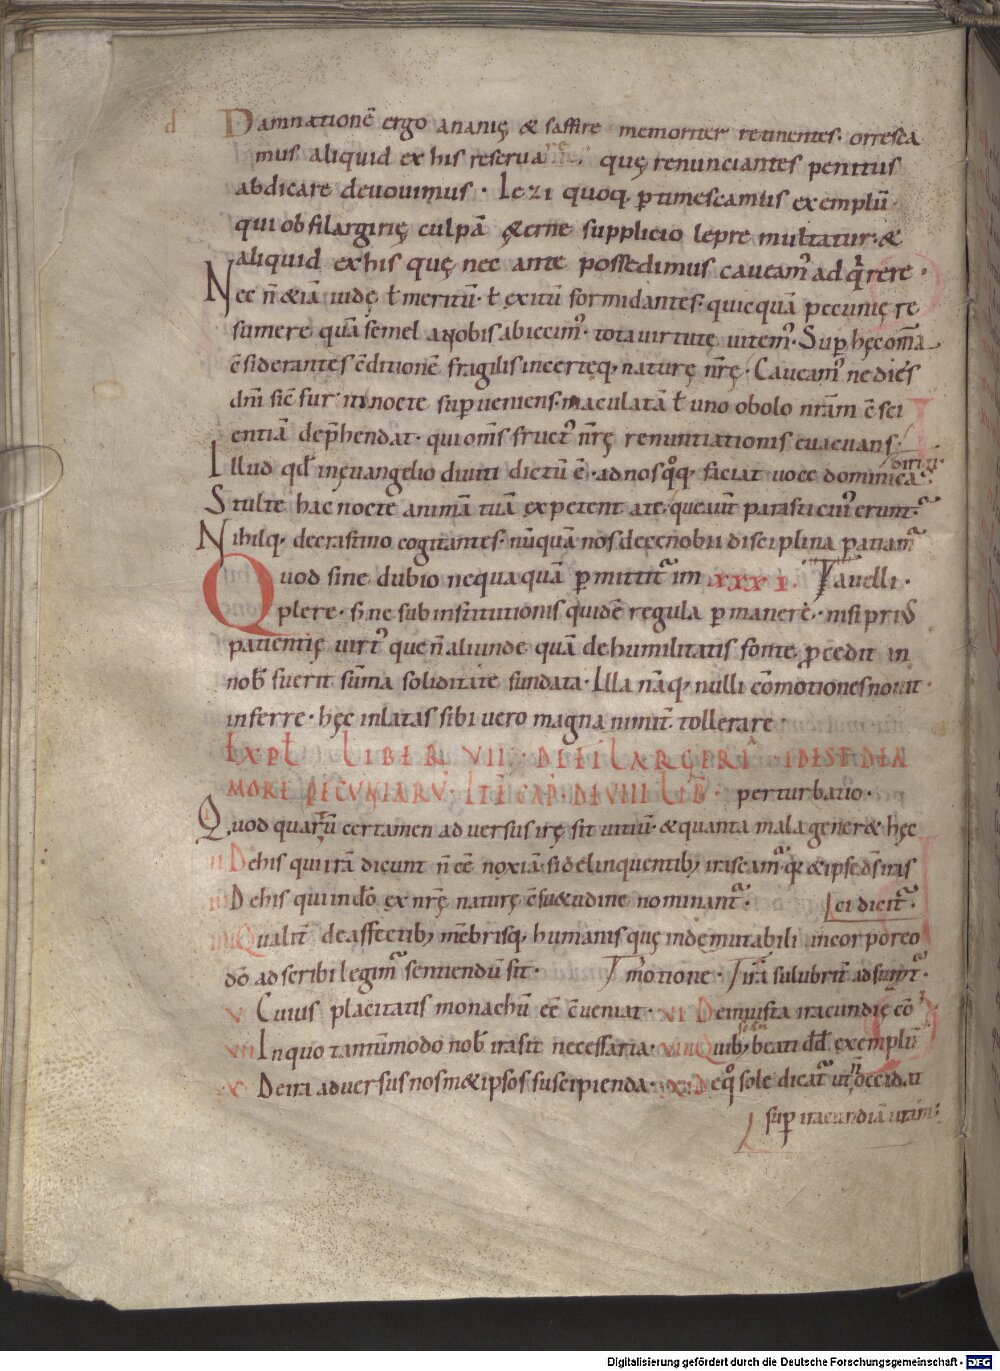 d Damnationē ergo ananię & saffire memoriter retinentes. orresca
mus aliquid ex his reservare. quę renunciantes penitus
abdicare devovimus. Iezi quoq; ptimescamus exemplū.
qui ob filargirię culpā ęterne supplicio lepre multatur. &
aliquid ex his quę nec ante possedimus caveam' adq̄rere.
Nec n̄ &iā iudę ł meritū. ł exitū formidantes. quicquā pecunię re
sumere quā semel a nobis abiecim'. tota virtute vitem'. Sup hęc om̄a
c̄siderantes c̄ditionē fragilis incertęq; naturę nr̄ę. Caveam' ne dies
dn̄i sic̄ fur in nocte superveniens. maculatā ł uno obolo nr̄am c̄sci
entiā dep̄hendat. qui om̄s fruct' nr̄ę renuntiationis evacuans.
Illud qd̄ in ęvangelio diviti dictū ē. ad nos q°q; faciat voce dominica
Stulte hac nocte animā tuā expetent a te. que aut̄ parasti cui' erunt.
Nihilq; de crastino cogitantes. nūquā nos de cenobii disciplina patiam̄
Quod sine dubio nequaquā pmittit̄ im XXXI. Tavelli.
plere. sine sub institutionis quidē regula pmanere. nisi pri'
patientię virt' que n̄ aliunde quā de humilitatis fonte pcedit in
nob̄ fuerit sūma soliditate fundata. Illa nāq; nulli cōmotiones novit
inferre. hęc inlatas sibi vero magnanimit̄ tollerare.
EXPŁ LIBER VII. DE FILARGYRIA. ID EST DE A
MORE PECUNIARŪ. ITĒ CAP. DE VIIII LIB. perturbatio.
Quod quartū certamen adversus irę sit vitiū. & quanta mala gener& hęc
II De his qui irā dicunt n̄ eē noxiā. si delinquentib; irascam̄. q̄a & ipse ds̄ iras
III De his qui in dō ex nr̄ę naturę c̄su&udine nominant̄. ci dicit̄.
IIII Qualit̄ de affectib; mēbrisq; humanis quę in dō inmutabili. incorporeo
dō adscribi legim' sentiendū sit. T motione. T irā salubrit̄
V Cuius placitatis monachū eē c̄veniat. VI De iniusta iracundię cō
VII In quo tantūmodo nob̄ ira sit necessaria. VIII Quib; beati dd̄ exemplū
X De ira adversus nosm&ipsos suscipienda. XI De q° sole dicat̄ ut n̄ occidat
sup iracundiā vr̄am:
Digitalisierung gefördert durch die Deutsche Forschungsgemeinschaft - DFG